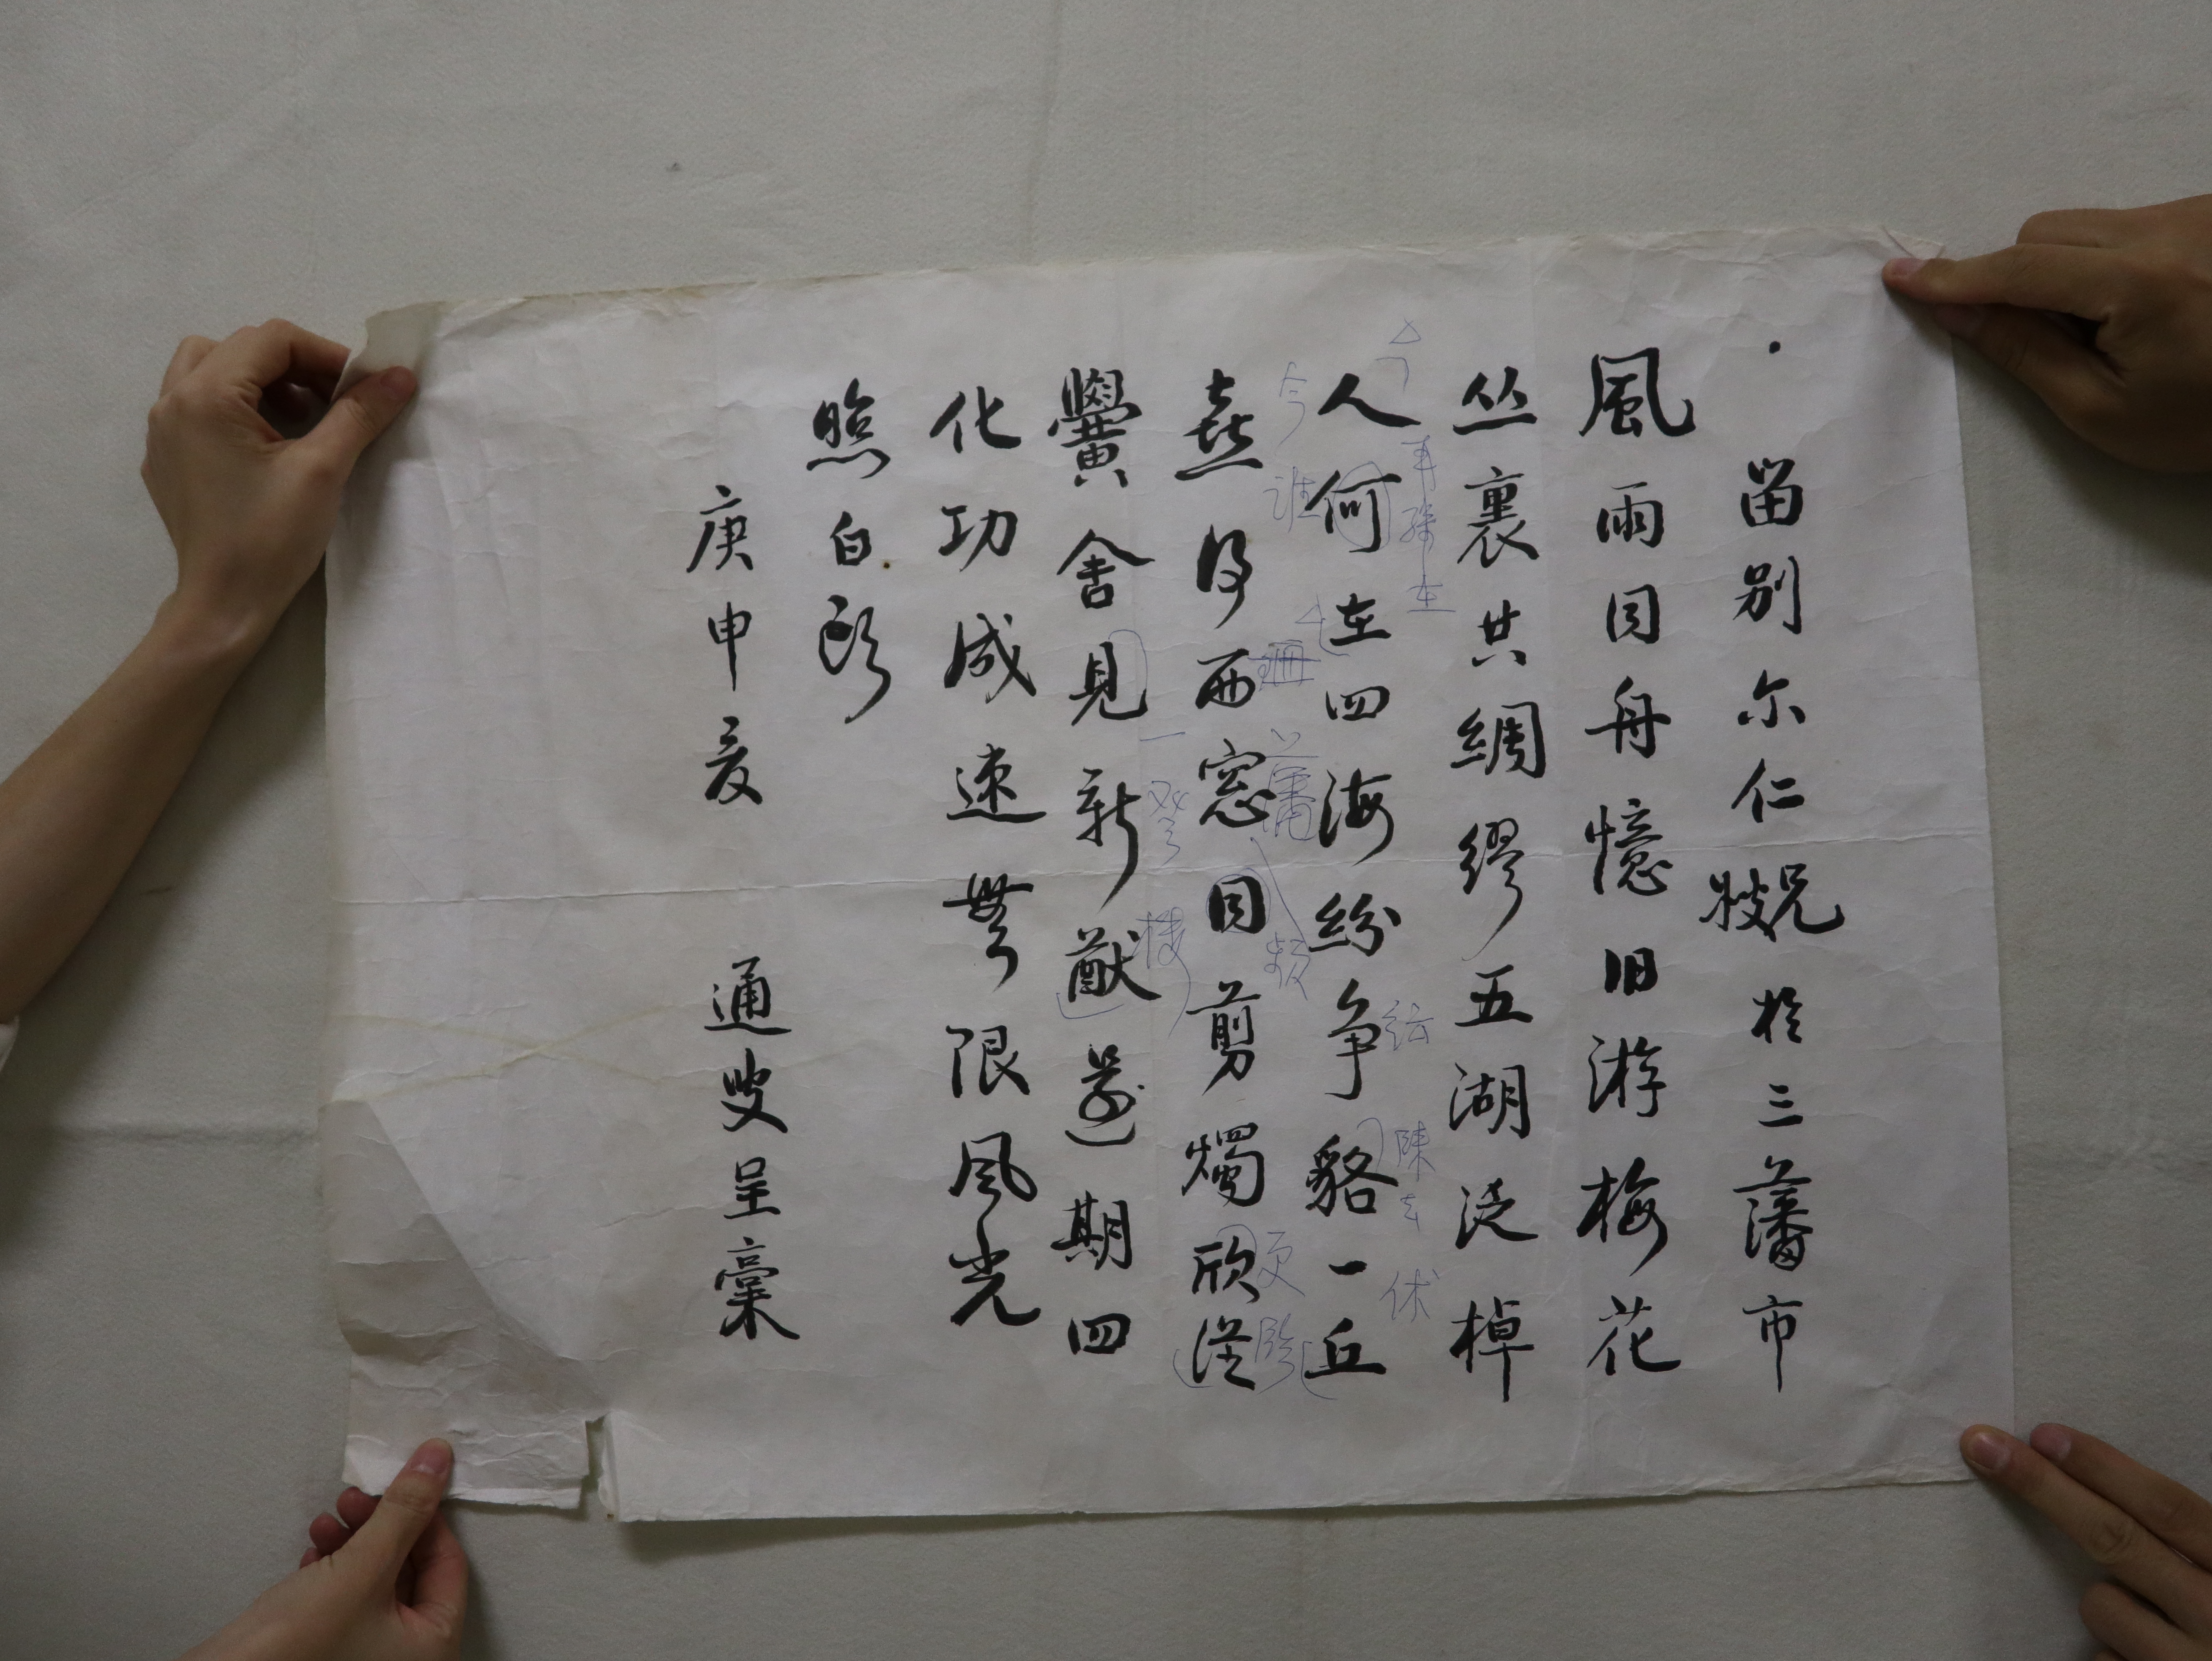 留别尔仁牧兄於三藩市
風雨同舟憶旧游梅花
丛裏共綢繆五湖泛棹
人何在四海紛争貉一丘
喜得西窓同剪燭欣從
黌舍見新猷還期四
化功成速無限风光
照白頭
庚申夏 通叟呈稾